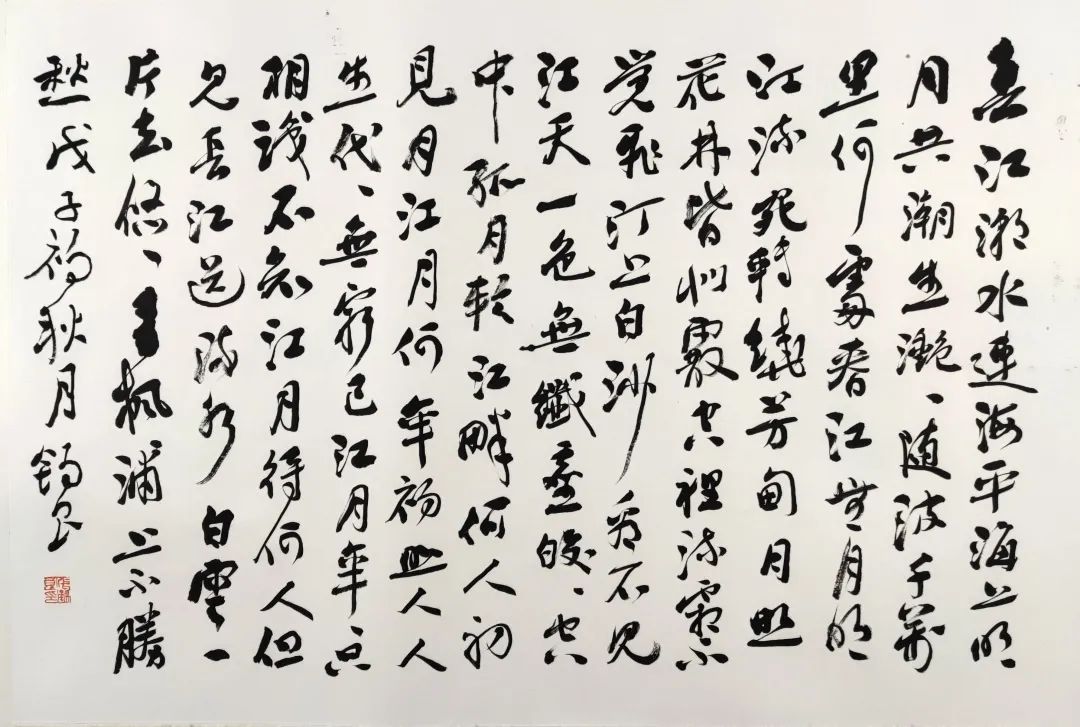 春江潮水連海平海上明
月共潮生灧、随波千萬
里何處春江無月明
江流宛轉繞芳甸月照
花林皆似霰空裡流霜不
觉飛汀上白沙看不见
江天一色無纖塵皎、空
中孤月輪江畔何人初
見月江月何年初照人人
生代、無窮已江月年只
相識不知江月待何人但
见長江送流水白雲一
片去悠、青楓浦上不勝
愁戊子秋月錫良